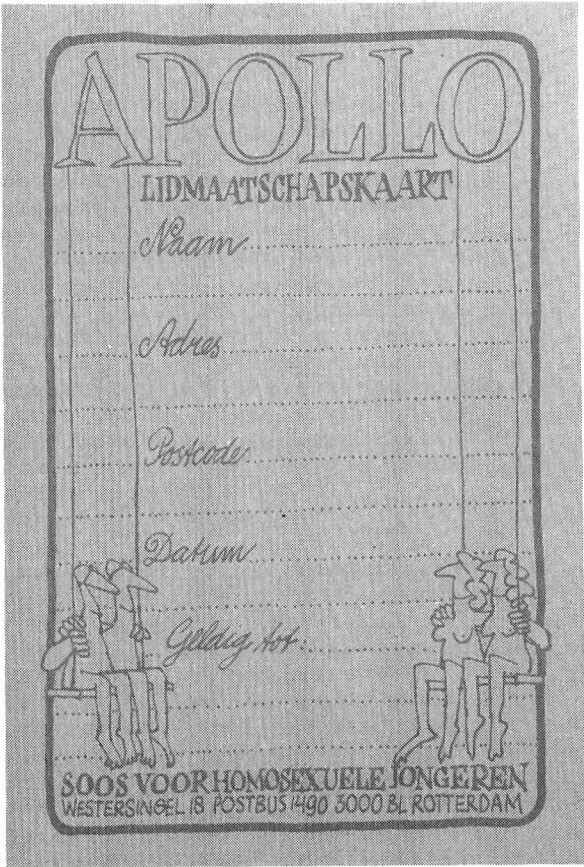 APOLLO
LIDMAATSCHAPSKAART
Naam
Adres
Postcode
Datum
Geldig tot:
SOOS VOOR HOMOSEXUELE JONGEREN
WESTERSINGEL 18 POSTBUS 1490 3000 BL ROTTERDAM